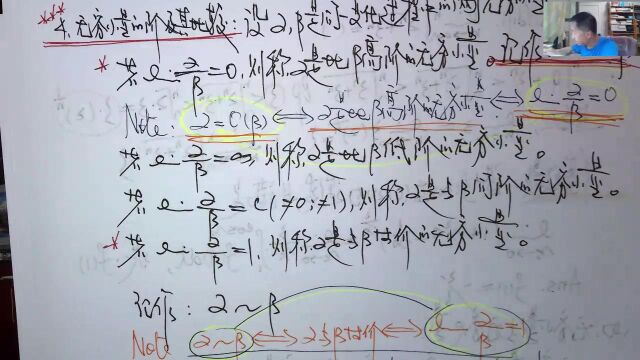 4. 无穷小量的阶及其比较：设 α, β 是同一变化过程的无穷小量。
* 若 lim α/β = 0, 则称 α 是比 β 高阶的无穷小量。记作
Note: α = o(β) ⟺ α 是比 β 高阶的无穷小量 ⟺ lim α/β = 0
若 lim α/β = ∞, 则称 α 是比 β 低阶的无穷小量。
若 lim α/β = c (≠0; ≠1), 则称 α 是与 β 同阶的无穷小量。
* 若 lim α/β = 1, 则称 α 是与 β 等价的无穷小量。
记作: α ~ β
Note α ~ β ⟺ α 与 β 等价 ⟺ lim α/β = 1